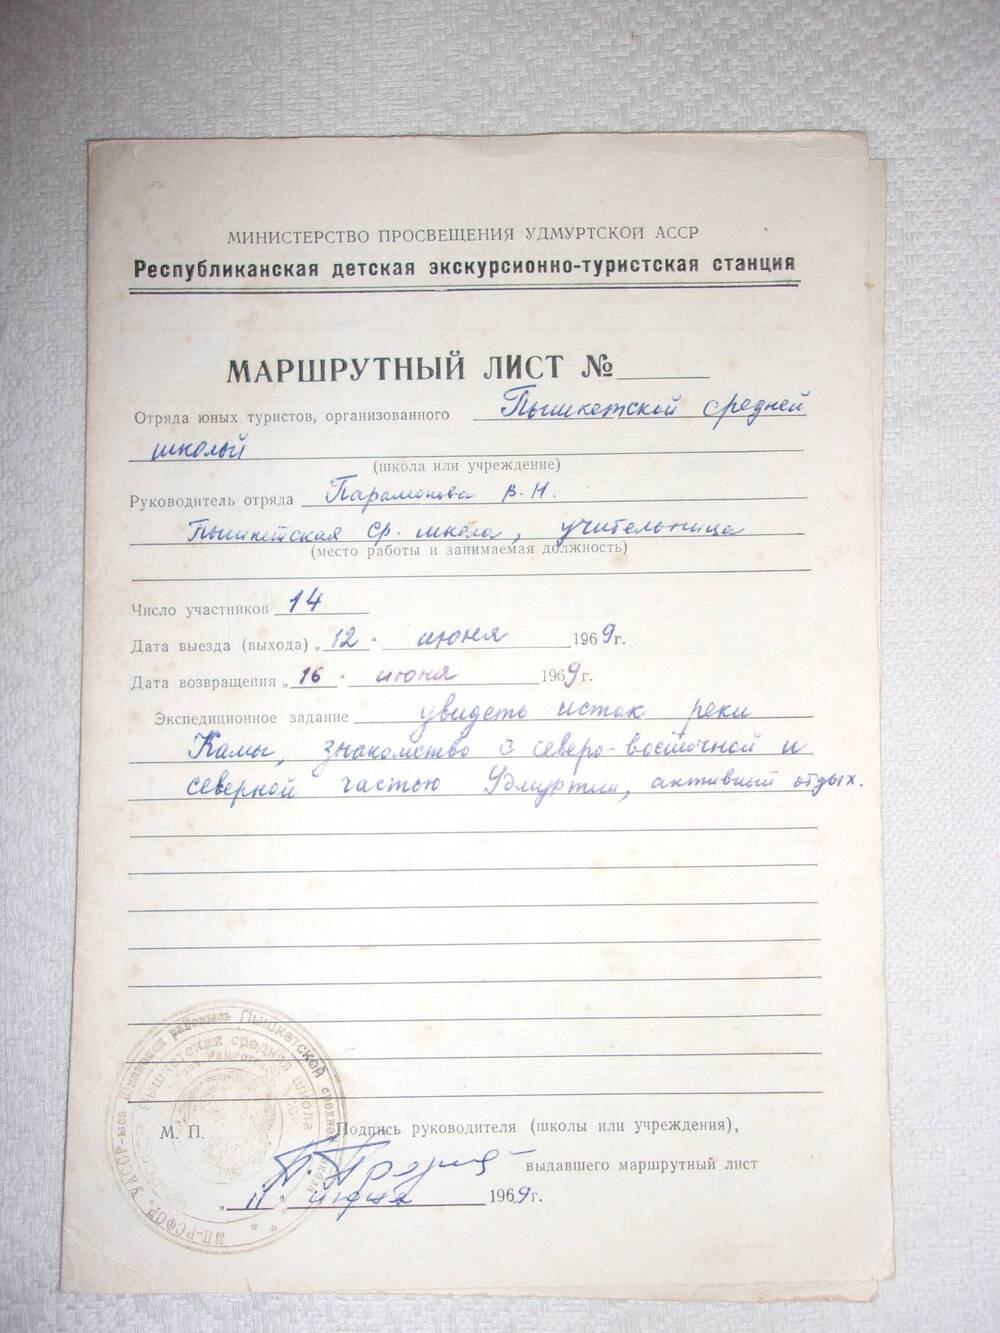 МИНИСТЕРСТВО ПРОСВЕЩЕНИЯ УДМУРТСКОЙ АССР
Республиканская детская экскурсионно-туристская станция
МАРШРУТНЫЙ ЛИСТ №
Отряда юных туристов, организованного Пышкетской средней
школой
(школа или учреждение)
Руководитель отряда Парамонова В. Н.
Пышкетская ср. школа, учительница
(место работы и занимаемая должность)
Число участников 14
Дата выезда (выхода) „12“ июня 1969г.
Дата возвращения „16“ июня 1969г.
Экспедиционное задание увидеть исток реки
Камы, знакомство с северо-восточной и
северной частью Удмуртии, активный отдых.
М. П.
Подпись руководителя (школы или учреждения),
выдавшего маршрутный лист
„11“ июня 1969г.
Пышкетская средняя школа